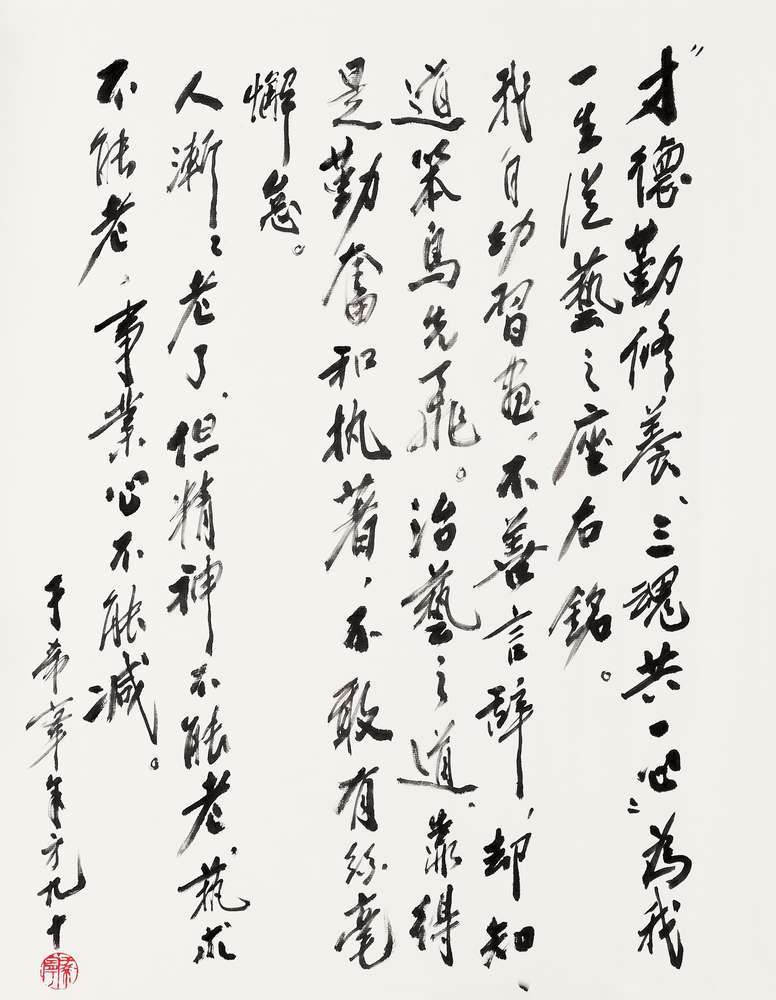 “才德勤修養、三魂共一心”為我
一生從藝之座右銘。
我自幼習畫、不善言辭、却知、
道笨鳥先飛。治藝之道、靠得
是勤奮和执著，不敢有絲毫
懈怠。
人漸〻老了、但精神不能老、求
不能老，事業心不能減。
于希寧年方九十